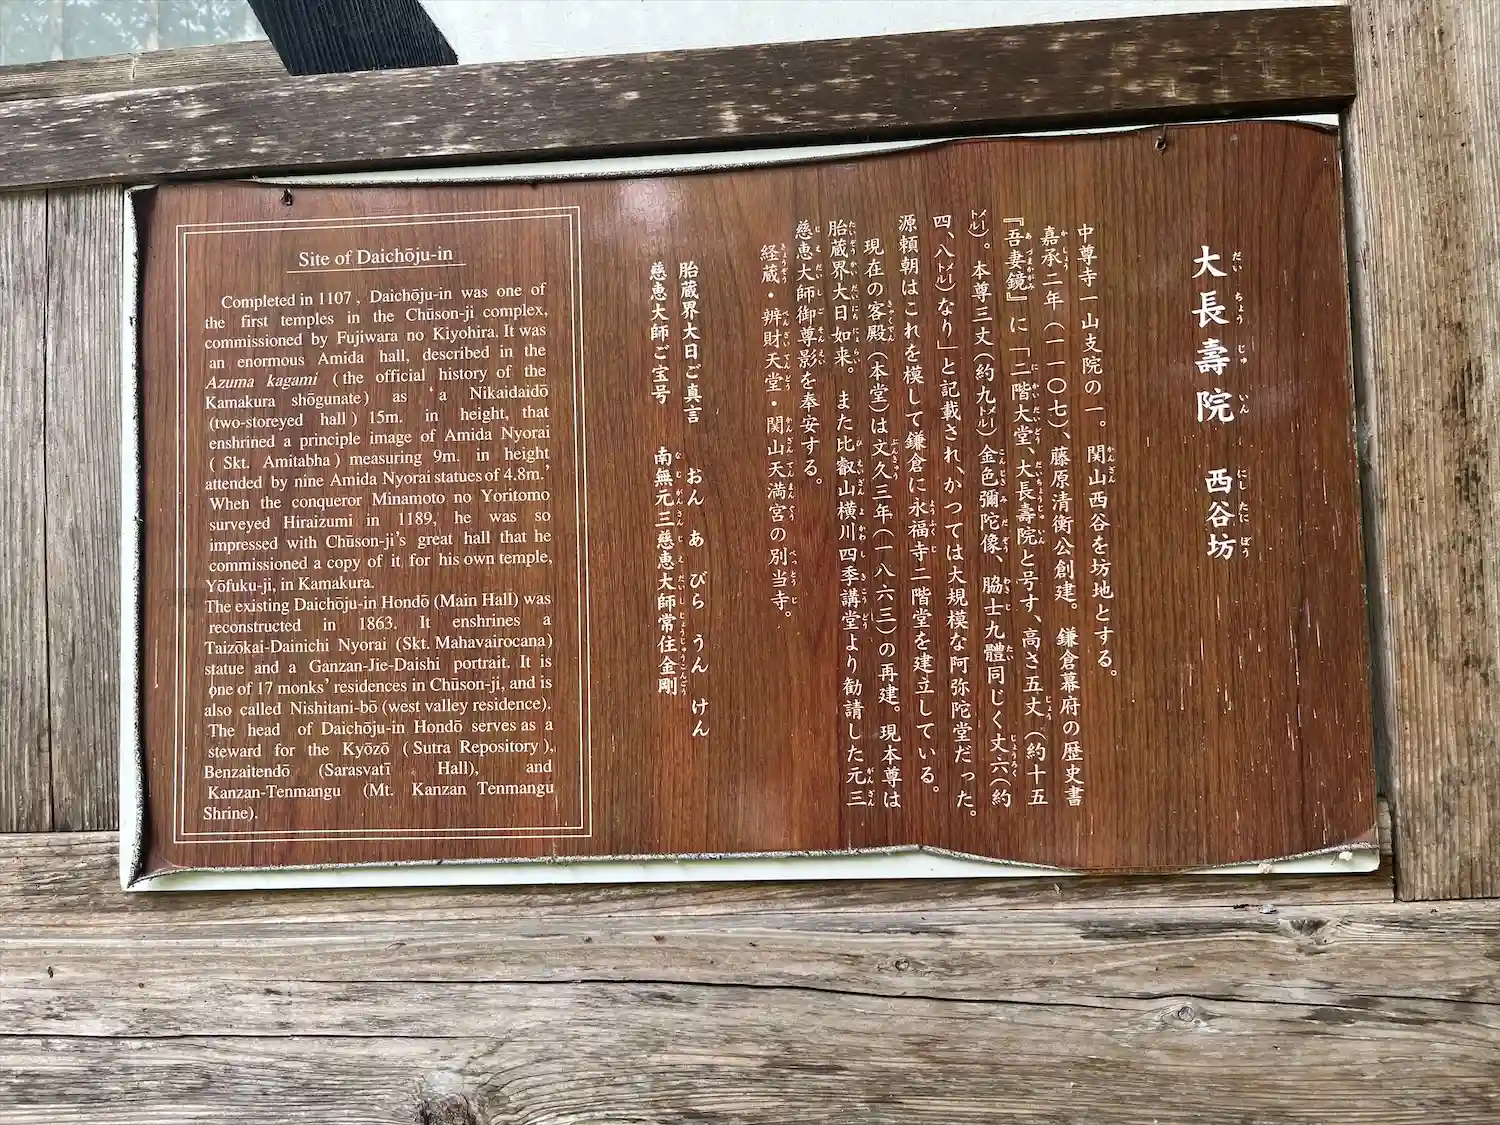 大長壽院　西谷坊
だいちょうじゅいん　にしたにぼう
中尊寺一山支院の一。関山西谷を坊地とする。
嘉承二年（一一〇七）、藤原清衡公創建。鎌倉幕府の歴史書
『吾妻鏡』に「二階大堂、大長壽院と号す、高さ五丈（約十五
メートル）。本尊三丈（約九メートル）金色彌陀像、脇士九體同じく丈六（約
四、八メートル）なり」と記載され、かつては大規模な阿弥陀堂だった。
源頼朝はこれを模して鎌倉に永福寺二階堂を建立している。
現在の客殿（本堂）は文久三年（一八六三）の再建。現本尊は
胎蔵界大日如来。また比叡山横川四季講堂より勧請した元三
慈恵大師御尊影を奉安する。
経蔵・辨財天堂・関山天満宮の別当寺。
胎蔵界大日ご真言　おん　あ　びら　うん　けん
慈恵大師ご宝号　南無元三慈恵大師常住金剛
Site of Daichōju-in
Completed in 1107, Daichōju-in was one of
the first temples in the Chūson-ji complex,
commissioned by Fujiwara no Kiyohira. It was
an enormous Amida hall, described in the
Azuma kagami (the official history of the
Kamakura shōgunate) as ‘a Nikaidaidō
(two-storeyed hall) 15m. in height, that
enshrined a principle image of Amida Nyorai
(Skt. Amitabha) measuring 9m. in height
attended by nine Amida Nyorai statues of 4.8m.’
When the conqueror Minamoto no Yoritomo
surveyed Hiraizumi in 1189, he was so
impressed with Chūson-ji’s great hall that he
commissioned a copy of it for his own temple,
Yōfuku-ji, in Kamakura.
The existing Daichōju-in Hondō (Main Hall) was
reconstructed in 1863. It enshrines a
Taizōkai-Dainichi Nyorai (Skt. Mahavairocana)
statue and a Ganzan-Jie-Daishi portrait. It is
one of 17 monks’ residences in Chūson-ji, and is
also called Nishitani-bō (west valley residence).
The head of Daichōju-in Hondō serves as a
steward for the Kyōzō (Sutra Repository),
Benzaitendō (Sarasvatī Hall), and
Kanzan-Tenmangu (Mt. Kanzan Tenmangu
Shrine).